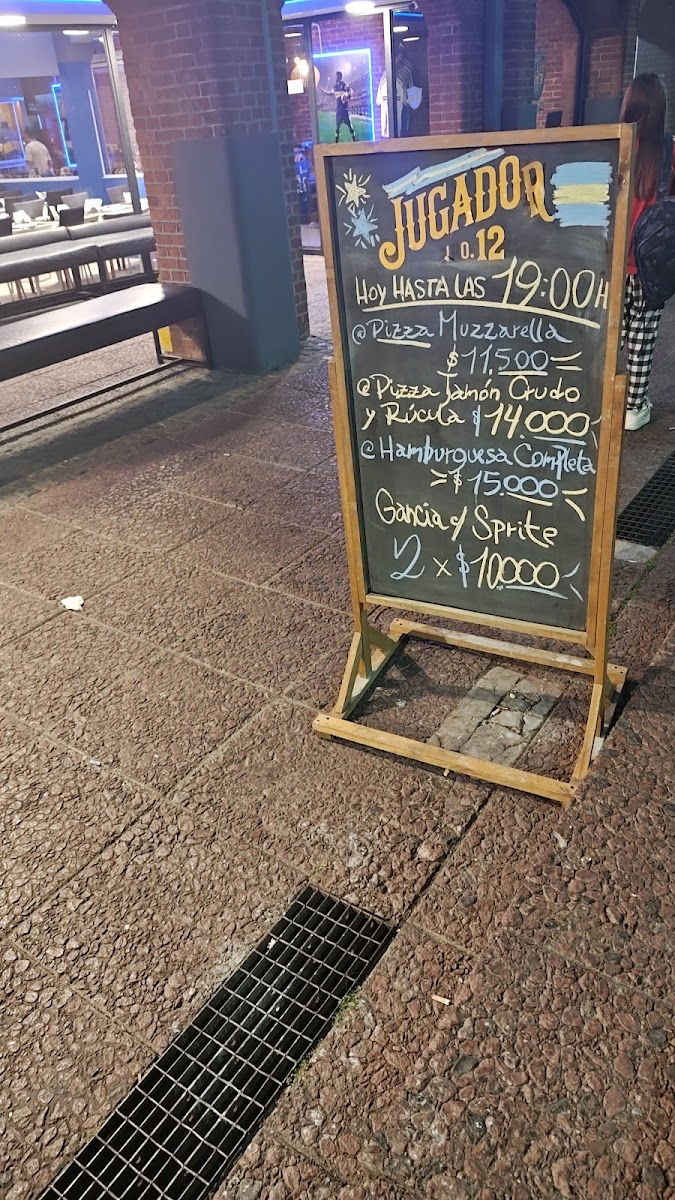 JUGADOR
no.12
HOY HASTA LAS 19:00H
@Pizza Muzzarella
$11.500=
@Pizza Jamón Crudo
y Rúcula $14.000
@Hamburguesa Completa
=$15.000=
Gancia c/ Sprite
2 x $10000